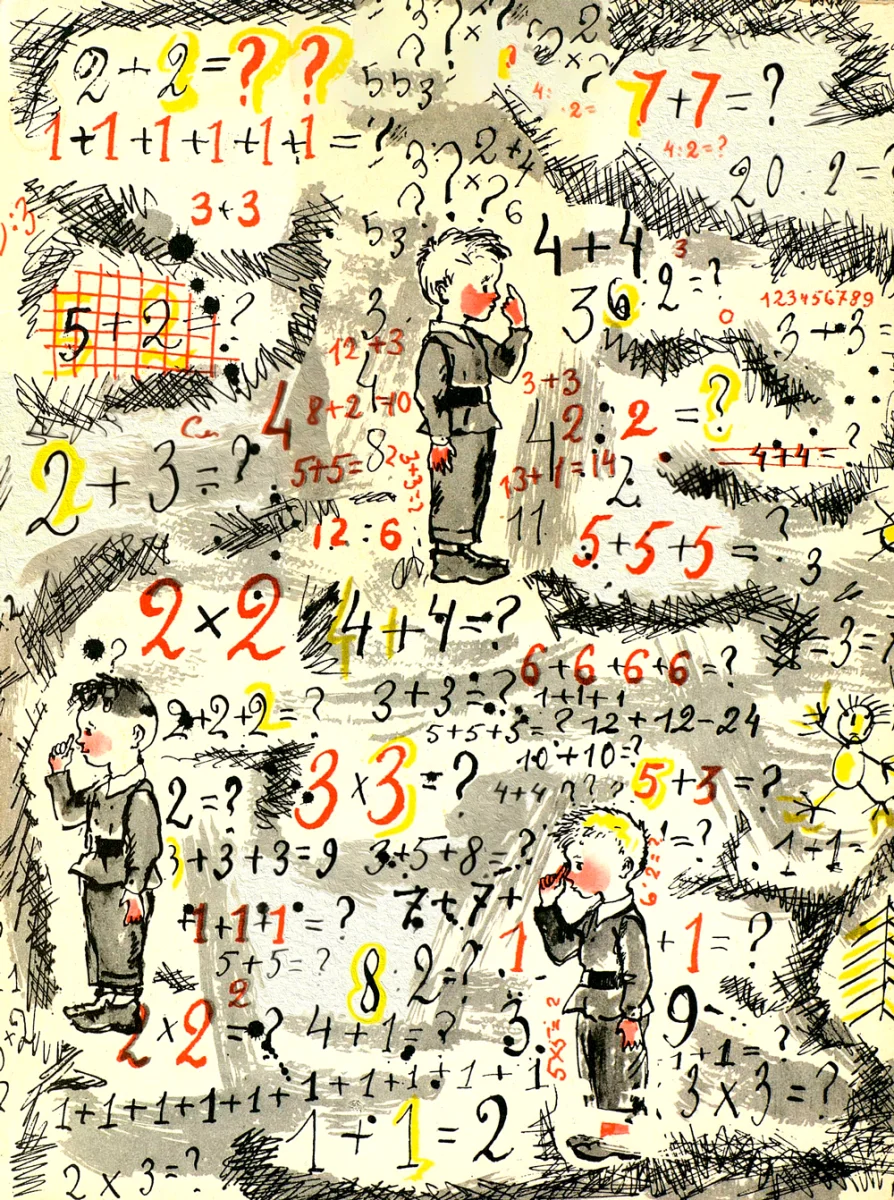 2+2=??
1+1+1+1+1+1=?
3+3
5+2=?
2+3=?
5 5 3
3
2+4
7+7=?
4:2=?
20:2=?
4+4
3
36:2=?
123456789
3+3=
12+3
8+2
=10
5+5=
8
3+3=?
12:6
4
3+3
42:2=?
13+1=14
2
11
4+4=?
5+5+5=?
3
2×2
4+4=?
-3=?
6+6+6+6=?
1+1+1
2+2+2=?
3+3=?
5+5+5=?
12+12-24
10+10=?
3×3=?
4+4 ???
5+3=?
2=?
1+1=
3+3+3=9
3+5+8=?
=?
6:2=?
+1+1+1=?
7+7+
1
+1=?
5+5=?
8:2=?
2
2×2=?
4+1=?
3
5×5=?
9
1+1=?
1+1+1+1+1+1+1+1+1+1
3×3=?
1+1=2
2×3=?